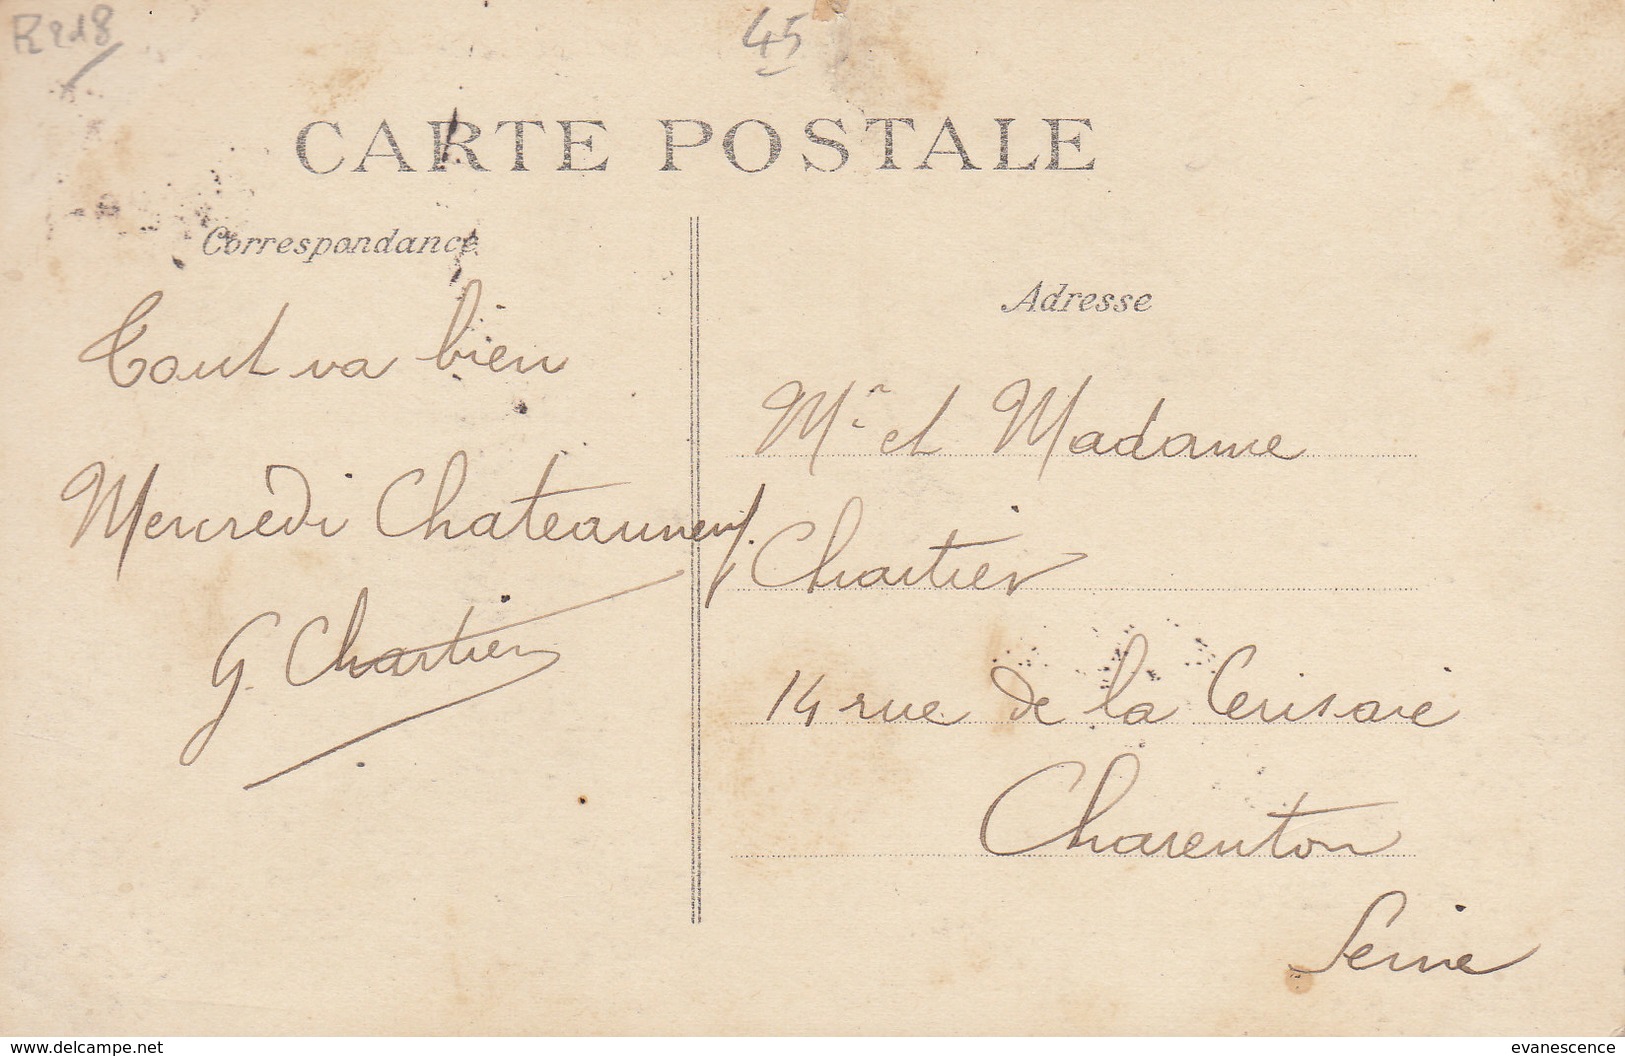 R218
45
CARTE POSTALE
Correspondance
Tout va bien
Mercredi Chateauneuf.
G. Chartier
Adresse
Mr et Madame
Chartier
14 rue de la Cerisaie
Charenton
Seine
www.delcampe.net
evanescence